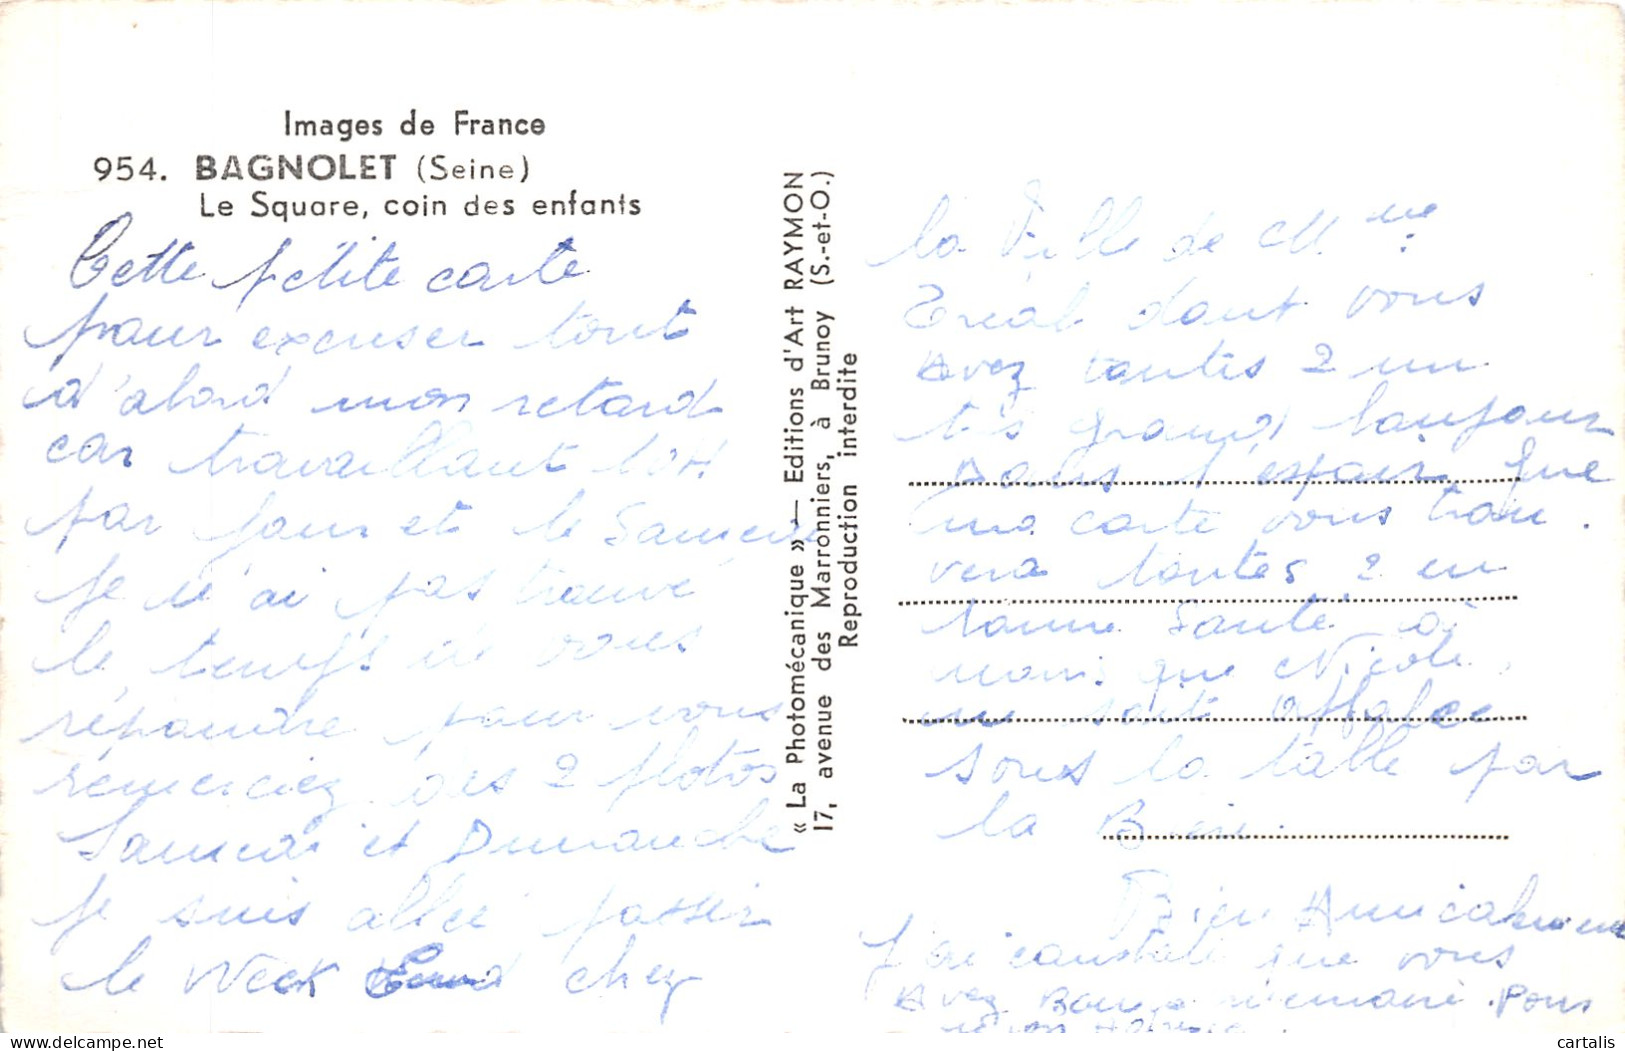 Images de France
954. BAGNOLET (Seine)
Le Square, coin des enfants
Cette petite carte
pour excuser tout
d'abord mon retard
car travaillant 10H
par jour et le Samedi
je n'ai pas trouvé
le temps de vous
répondre pour vous
remerciez des 2 photos
Samedi et Dimanche
je suis allée passer
le Week End chez
« La Photomécanique » — Editions d'Art RAYMON
17, avenue des Marronniers, à Brunoy (S.-et-O.)
Reproduction interdite
la Fille de Mme
dont vous
Avez toutes 2 un
très grand bonjour
Dans l'espoir que
ma carte vous trou.
vera toutes 2 en
bonne Santé à
moins que Nicole
ne soit affalée
sous la table par
la Bière.
Bien Amicalement
J'ai constaté que vous
Avez Bonne mémoire pour
mon
cartalis